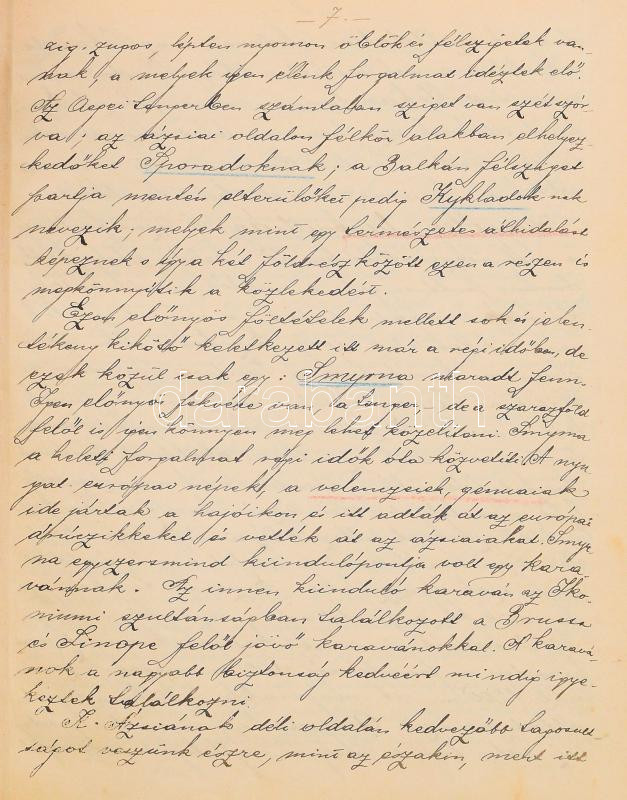 — 7. —
zig-zugos, lépten nyomon öblök és félszigetek van-
nak, a melyek igen élénk forgalmat idéztek elő.
Az Aegei tengerben számtalan sziget van szétszór-
va; az ázsiai oldalon félkör alakban elhelyez-
kedőket Sporadoknak; a Balkán félsziget
partja mentén elterülőket pedig Kykladoknak
nevezik; melyek mint egy természetes áthidalást
képeznek s így a két földrész között ezen a részen is
megkönnyitik a közlekedést.
Ezen előnyös föltételek mellett sok és jelen-
tékeny kikötő keletkezett itt már a régi időben, de
ezek közül csak egy: Smyrna maradt fenn.
Igen előnyös fekvése van, a tenger - de a szárazföld
felől is igen könnyen meg lehet közelíteni. Smyrna
a keleti forgalmat régi idők óta közvetíti. A nyu-
gat európai népek, a velenczeiek, génuaiak
ide jártak a hajóikon és itt adták át az európai
árúczikkeket és vették át az ázsiaiakat. Smyr-
na egyszersmind kiindulópontja volt egy kara-
vánnak. Az innen kiinduló karaván az Iko-
niumi szultánságban találkozott a Brussa
és Sinope felől jövő karavánokkal. A karavá-
nok a nagyobb biztonság kedvéért mindig igye-
keztek találkozni.
K. Ázsiának déli oldalán kedvezőbb tagosult-
ságot veszünk észre, mint az északin, mert itt
darabanth